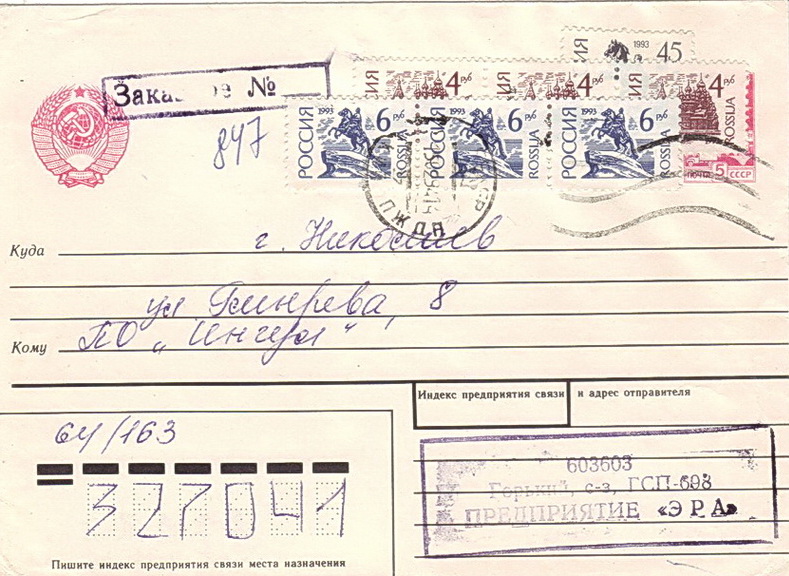 Заказное №
847
1993 45
РОССИЯ 4 руб
РОССИЯ 4 руб
РОССИЯ 4 руб ROSSIJA
РОССИЯ 1993 6 руб ROSSIJA
РОССИЯ 1993 6 руб ROSSIJA
РОССИЯ 1993 6 руб ROSSIJA
ПОЧТА 5 СССР
ПЖДП
Куда г. Николаев
ул 8
Кому ПО „Ингул“
Индекс предприятия связи и адрес отправителя
64/163
603603
Горький, с-з, ГСП-698
ПРЕДПРИЯТИЕ «ЭРА»
327041
Пишите индекс предприятия связи места назначения